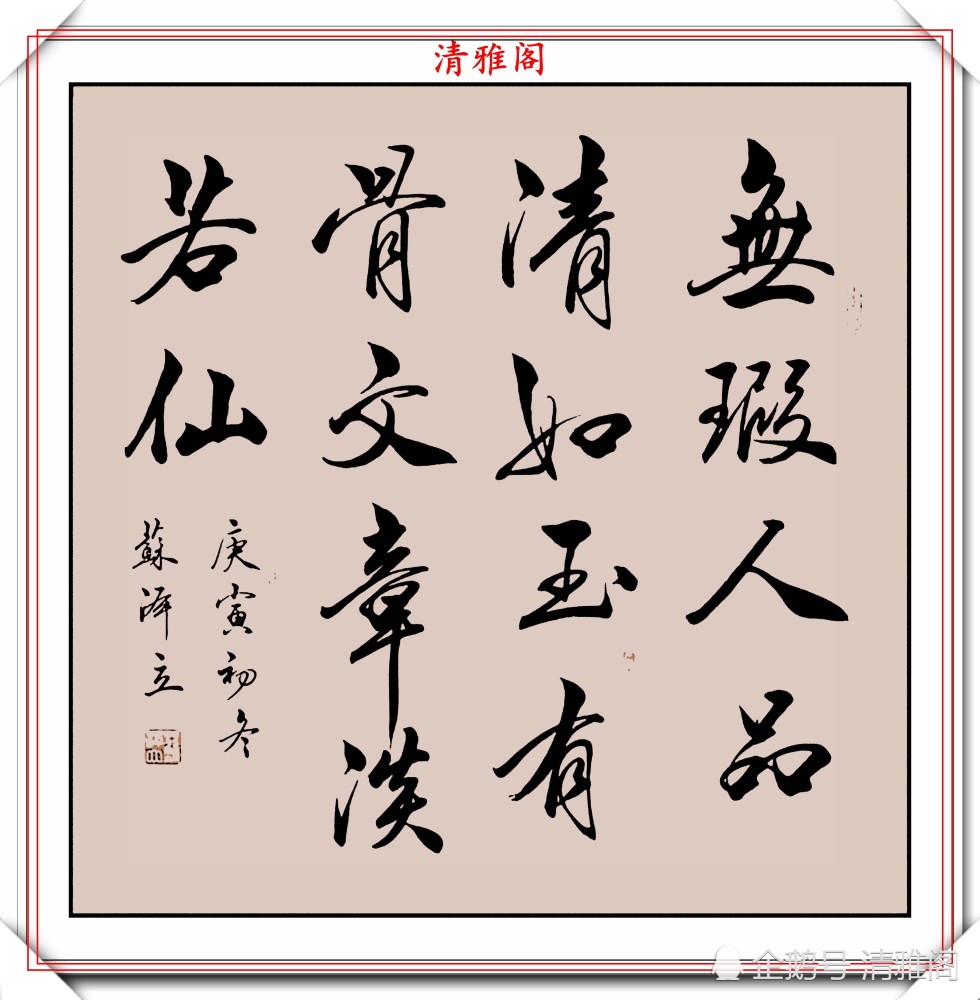 清雅阁
無瑕人品
清如玉有
骨文章淡
若仙
庚寅初冬
蘇澤立
企鹅号 清雅阁